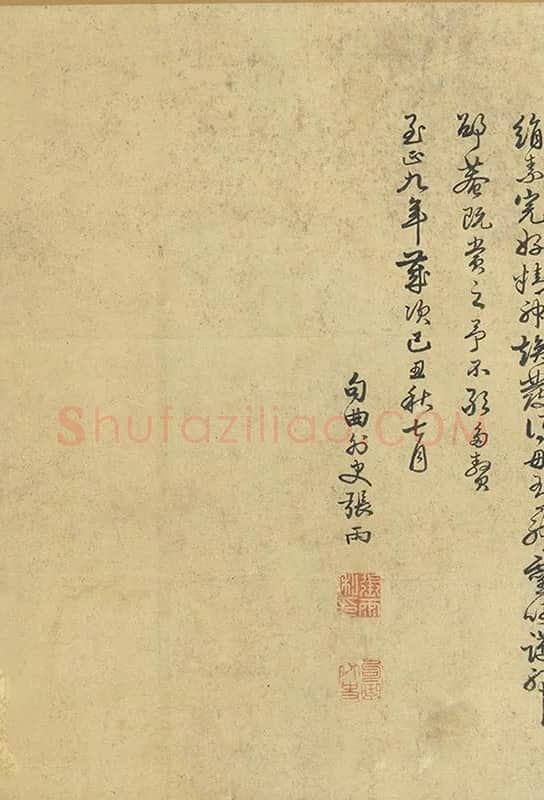 絹素完好精神煥發
邵菴既賞之予不敢多贅
至正九年歲次己丑秋七月
句曲外史張雨
Shufaziliao.COM